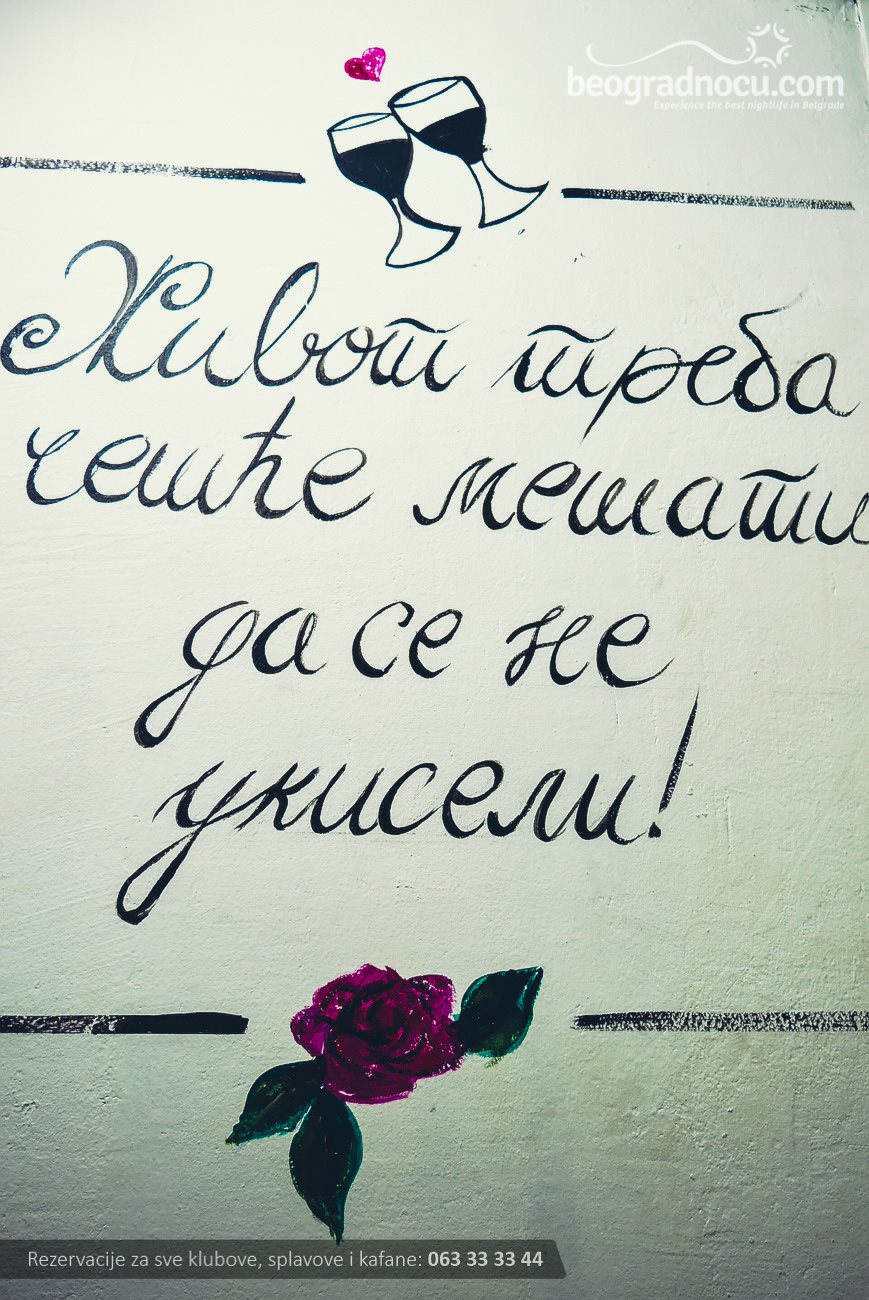 beogradnocu.com
Experience the best nightlife in Belgrade
Живот треба
чешће мешати
да се не
укисели!
Rezervacije za sve klubove, splavove i kafane: 063 33 33 44